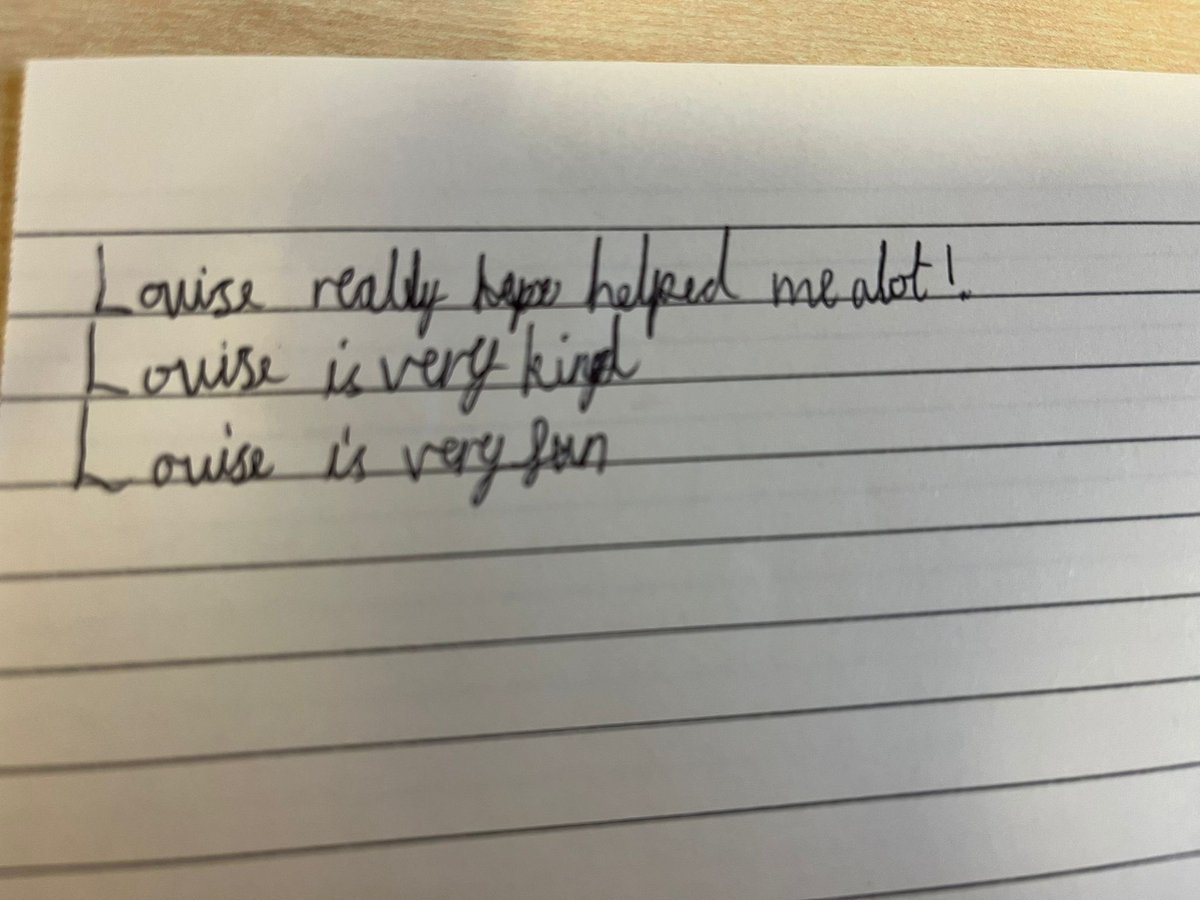 Louise really helped me alot!
Louise is very kind
Louise is very fun